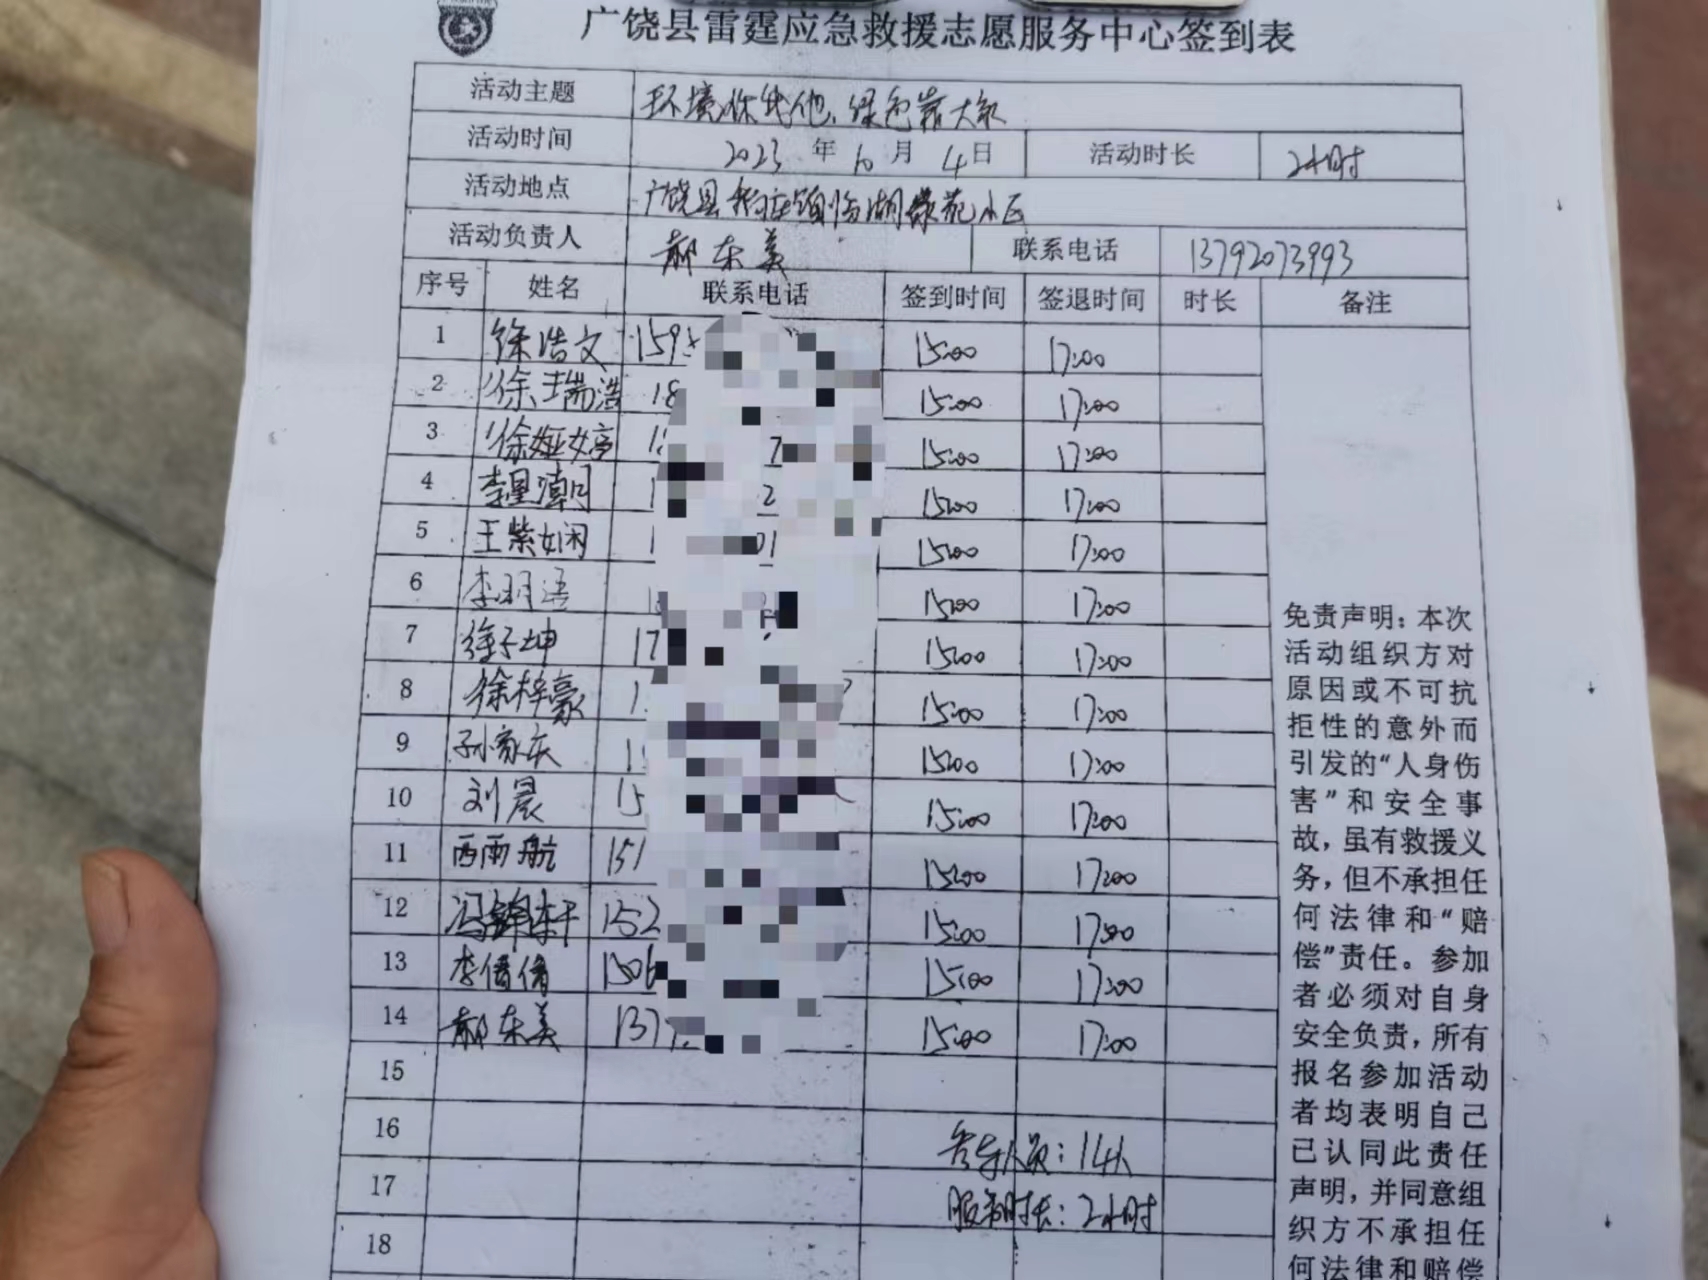 广饶县雷霆应急救援志愿服务中心签到表
活动主题 环境你我他,绿色靠大家
活动时间 2023 年 10 月 4 日 活动时长 2小时
活动地点 广饶县 湖 小区
活动负责人 郝东美 联系电话 13792073993
序号 姓名 联系电话 签到时间 签退时间 时长 备注
1 徐浩文 159 15:00 17:00
2 徐瑞浩 18 15:00 17:00
3 徐娅婷 1 7 15:00 17:00
4 李星潮 1 2 15:00 17:00
5 王紫娴 1 01 15:00 17:00
6 李明语 1 15:00 17:00
7 徐子坤 17 15:00 17:00
8 徐梓豪 1 15:00 17:00
9 孙家庆 1 15:00 17:00
10 刘晨 15 15:00 17:00
11 西雨航 151 15:00 17:00
12 冯锦轩 152 15:00 17:00
13 李倩倩 1506 15:00 17:00
14 郝东美 137 15:00 17:00
15
16 参与人员:14人
17 服务时长:2小时
18
免责声明:本次
活动组织方对
原因或不可抗
拒性的意外而
引发的“人身伤
害”和安全事
故,虽有救援义
务,但不承担任
何法律和“赔
偿”责任。参加
者必须对自身
安全负责,所有
报名参加活动
者均表明自己
已认同此责任
声明,并同意组
织方不承担任
何法律和赔偿